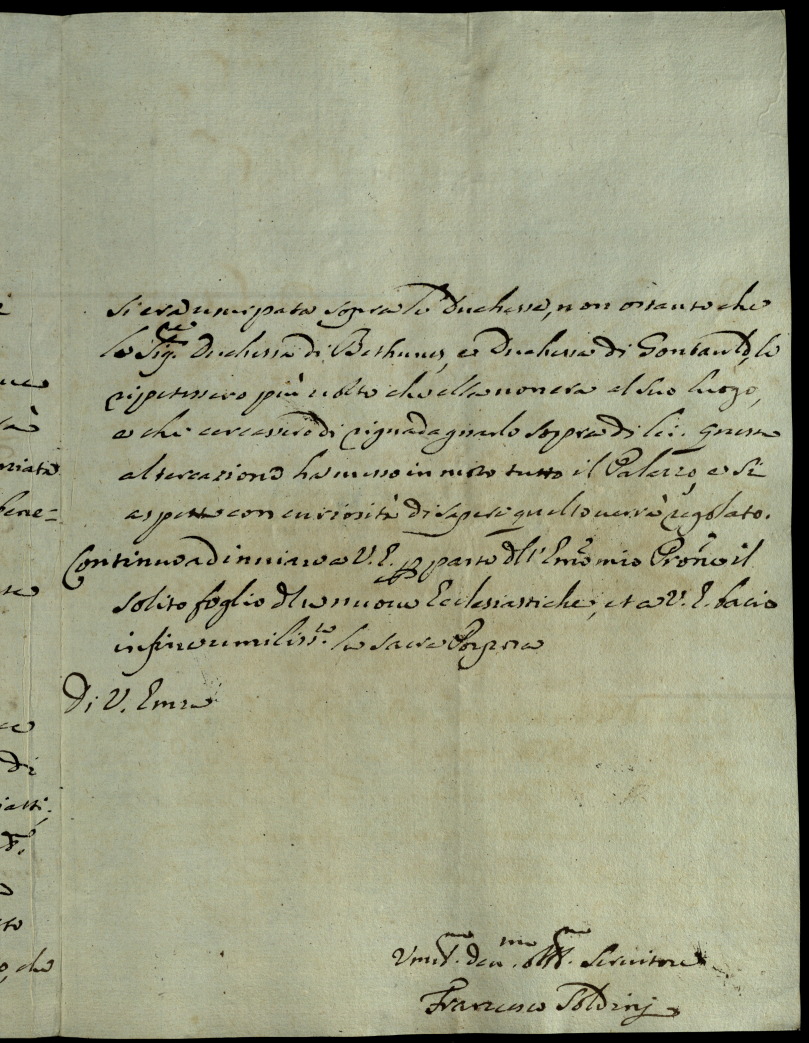 si era usurpata sopra le Duchesse, non ostante che
le Sig.re Duchessa di Bethunes, e Duchessa di Gontauld, le
ripetessero più volte che ella non era al suo luogo,
e che cercassero di riguadagnarlo sopra di lei. Questa
altercazione ha messo in moto tutto il Palazzo, e si
aspetta con curiosità di sapere quello verrà regolato.
Continuo ad inviare a V. E. per parte dell' Emo mio Prone il
solito foglio delle nuove Ecclesiastiche, et a V. E. bacio
in fine umiliss.te la sacra Porpora
Di V. Emza
Umil.mo dev.mo obbl.mo Servitore
Francesco Soldinj
bene=
Di
o, che